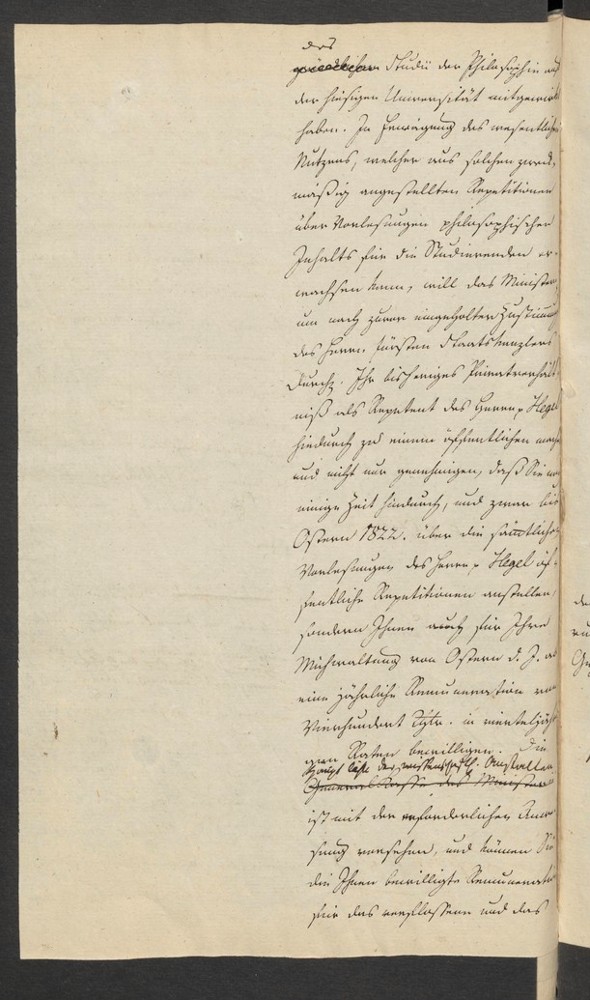 des
Studii der Philosophie auf
der hiesigen Universität mitgewirkt
haben. In Erwägung des wesentlichen
Nutzens, welcher aus solchen zweck-
mäßig angestellten Repetitionen
über Vorlesungen philosophischen
Inhalts für die Studirenden er-
wachsen kann, will das Ministeri-
um nach zuvor eingeholter Zustimmung
des Herrn Fürsten Staatskanzlers
Durchl. Ihr bisheriges Privatverhält-
niß als Repetent des Herrn p Hegel
hiedurch zu einem öffentlichen machen
und nicht nur genehmigen, daß Sie
einige Zeit hindurch, und zwar bis
Ostern 1822. über die sämtlichen
Vorlesungen des Herrn p Hegel öf-
fentliche Repetitionen anstellen,
sondern Ihnen auch für Ihre
Mühwaltung von Ostern d. J. ab
eine jährliche Remuneration von
Vierhundert Rthlr. in vierteljähri-
gen Raten bewilligen. Die
Haupt Casse der wissenschaftl. Anstalten
General Kasse des Ministerii
ist mit der erforderlichen Anwei-
sung versehen, und können Sie
die Ihnen bewilligte Remuneration
für das verflossene und das